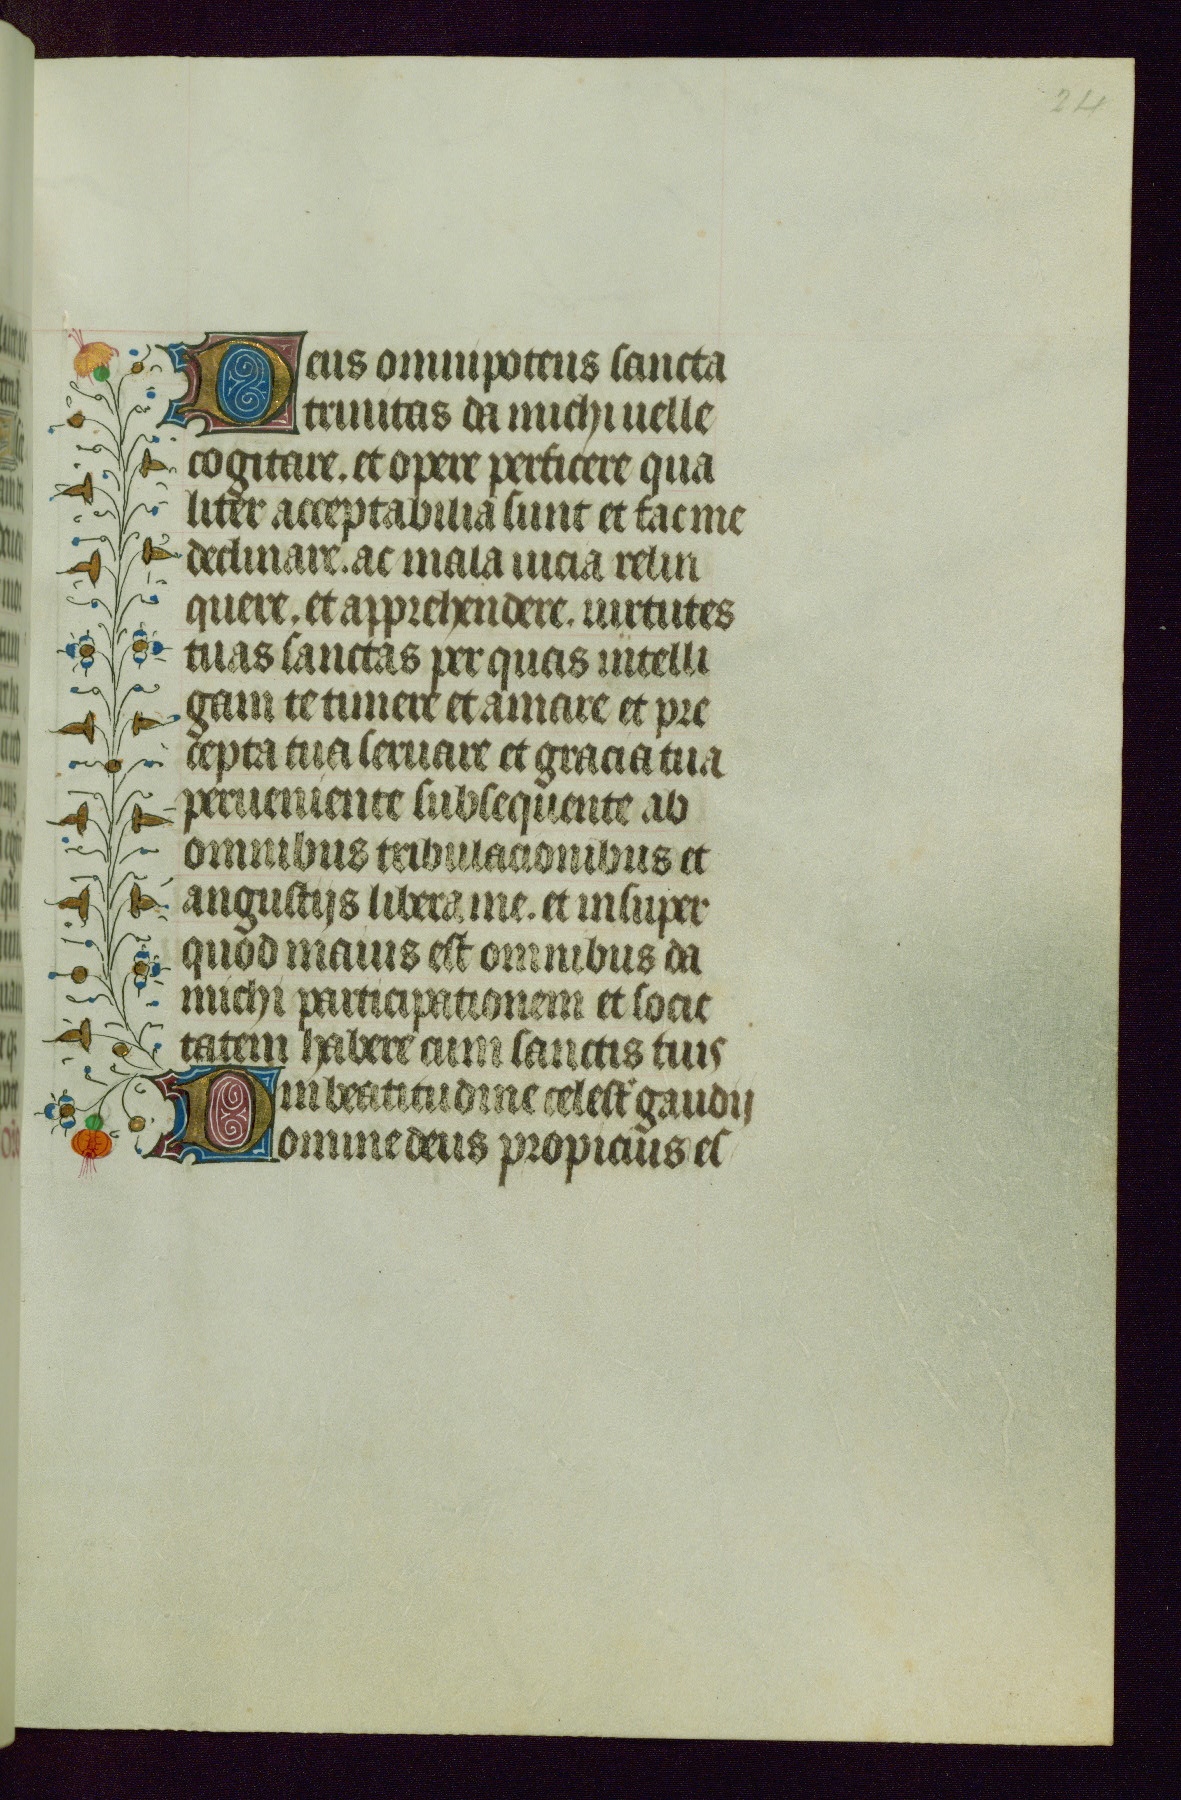 24
Deus omnipotens sancta
trinitas da michi uelle
cogitare. et opere perficere qua
liter acceptabilia sunt et fac me
declinare. ac mala uicia relin
quere. et apprehendere. uirtutes
tuas sanctas per quas intelli
gam te timere et amare et pre
cepta tua seruare et gracia tua
perueniente subsequente ab
omnibus tribulacionibus et
angustijs libera me. et insuper
quod maius est omnibus da
michi participationem et socie
tatem habere cum sanctis tuis
in beatitudine celest' gaudij
Domine deus propicius es